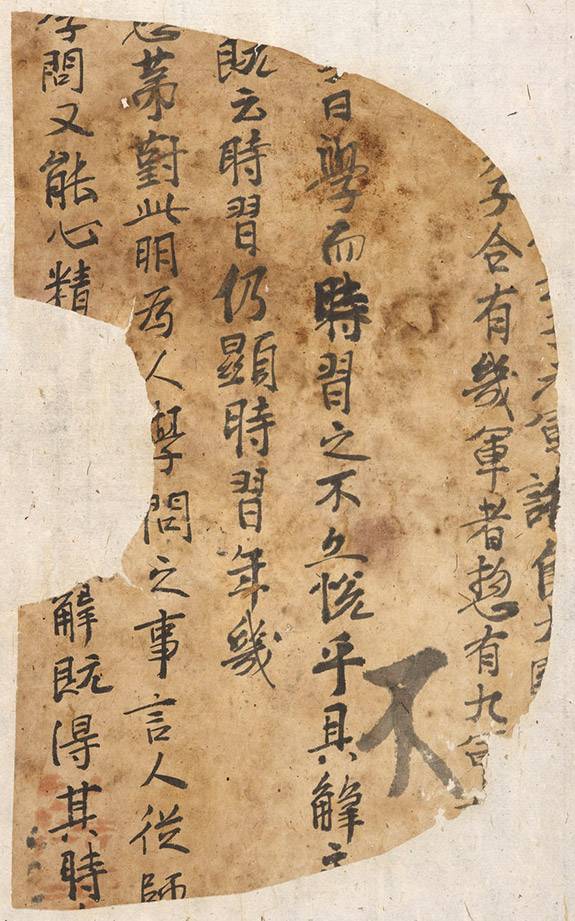 軍諸侯大國
子合有幾軍者惣有九
不
曰學而時習之不亦悅乎具解
既云時習仍顯時習年幾
苐對此明為人學問之事言人從師
學問又能心精
解既得其時